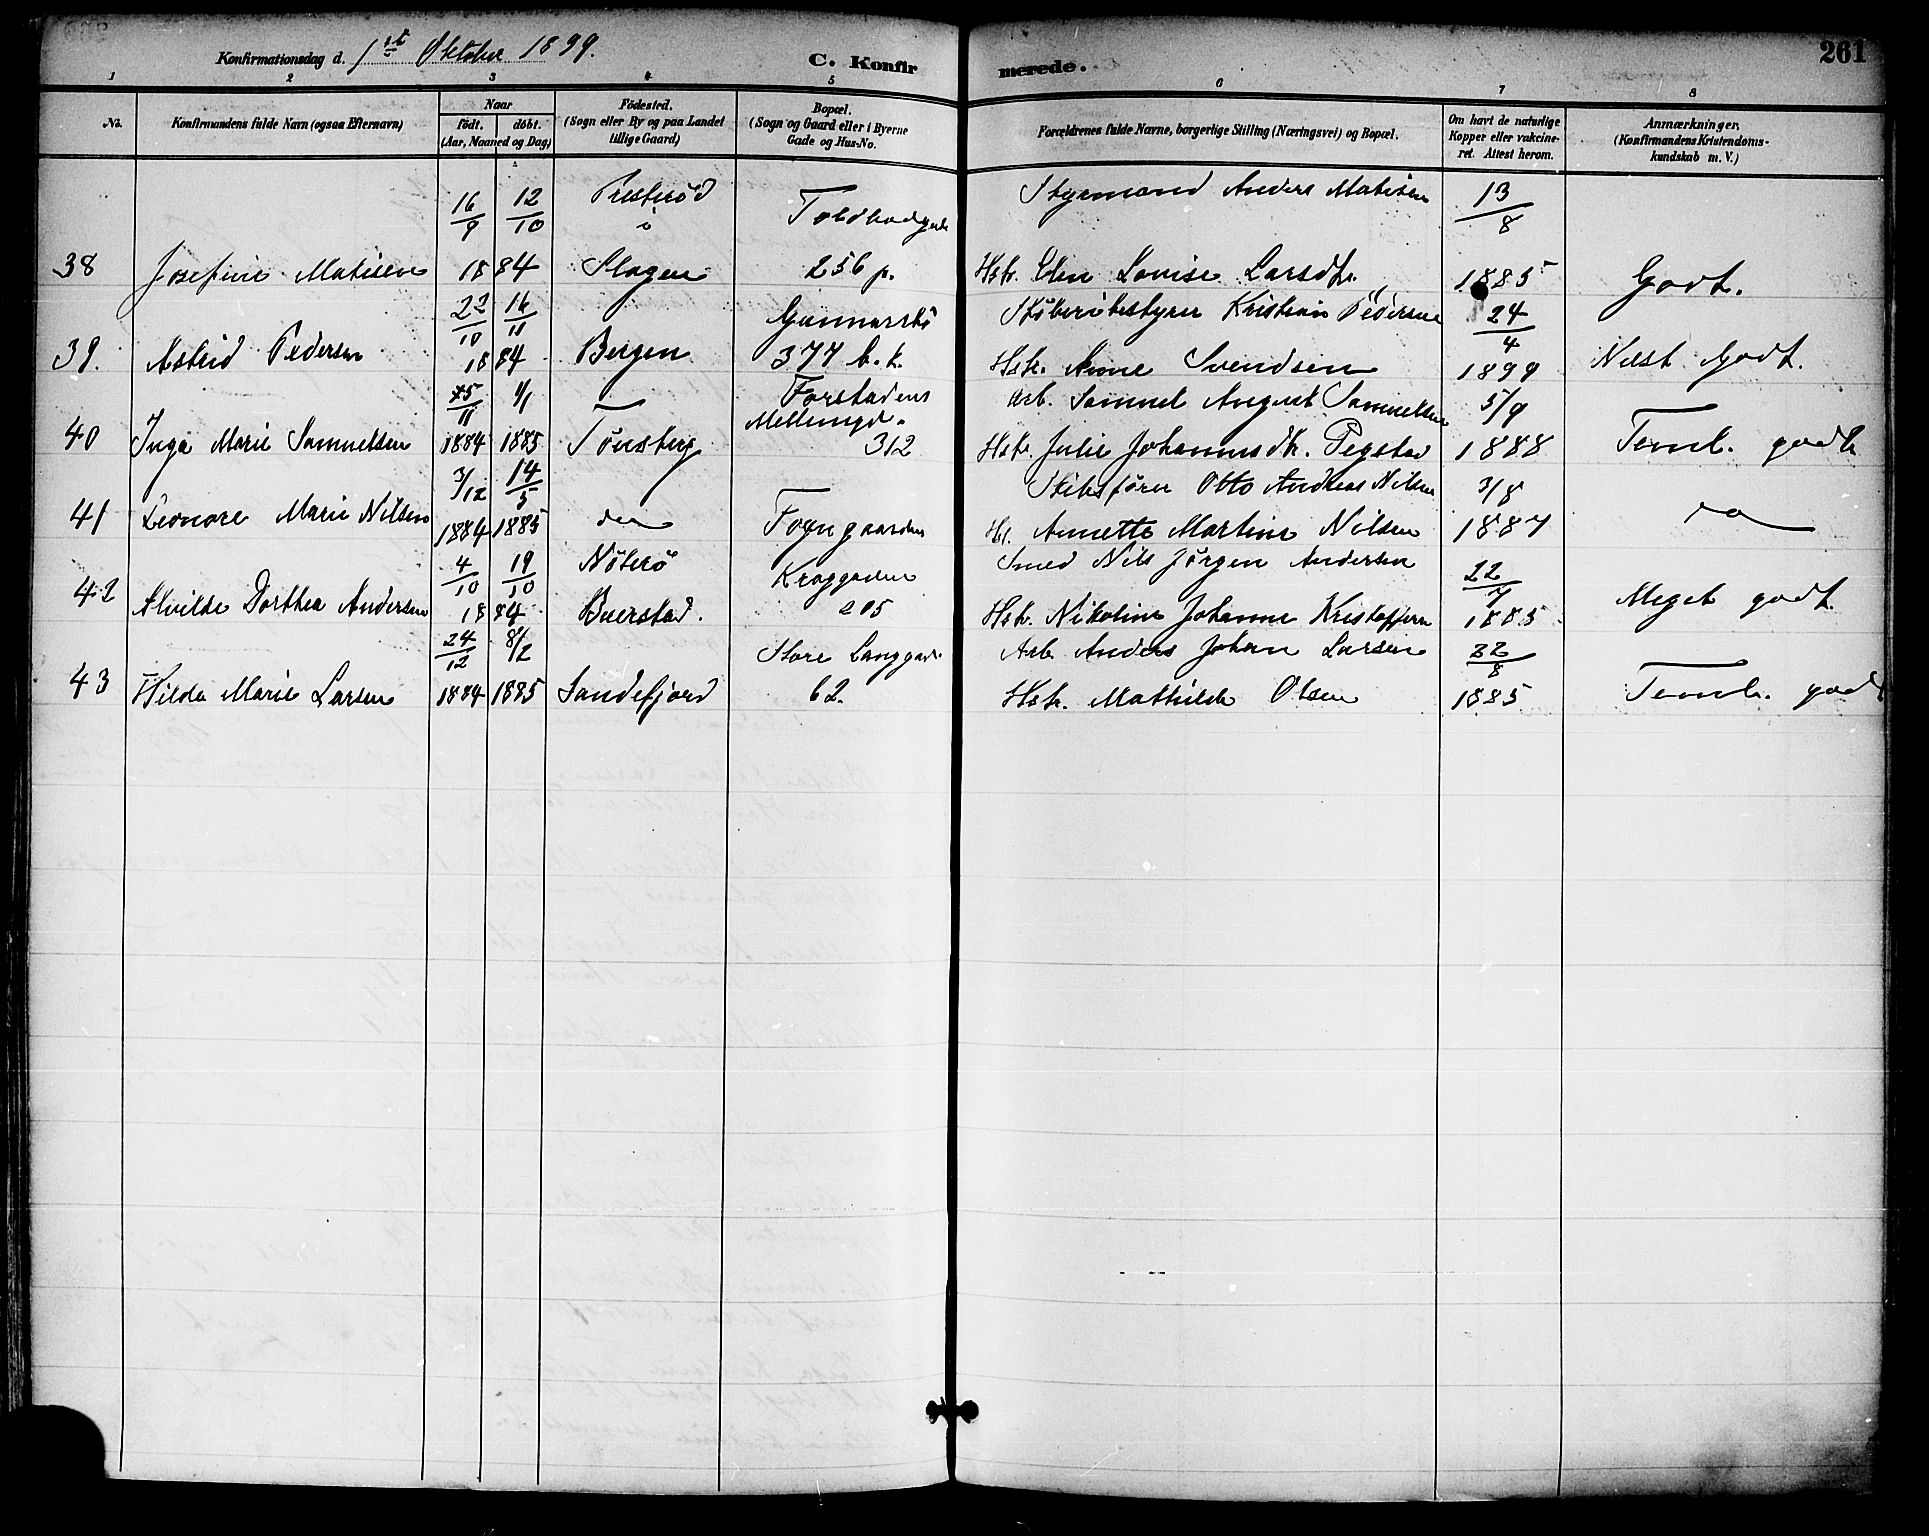 Konfirmationsdag d. 1st Oktober 1899.
C. Konfir
merede.
261
1 2 3 4 5 6 7 8
No.
Konfirmandens fulde Navn (ogsaa Efternavn)
Naar
födt. döbt.
(Aar, Maaned og Dag)
Födested.
(Sogn eller By og paa Landet
tillige Gaard)
Bopæl.
(Sogn og Gaard eller i Byerne
Gade og Hus-No.
Forældrenes fulde Navne, borgerlige Stilling (Næringsvei) og Bopæl.
Om havt de naturlige
Kopper eller vakcine-
ret. Attest herom.
Anmærkninger.
(Konfirmandens Kristendoms-
kundskab m. V.)
16/9 12/10 Presterød i Toldbodgade Styrmand Anders Matisen 13/8
38 Josefine Matisen 1884 Slagen 256 p. Hstr. Elen Lovise Larsdtr. 1885 Godt.
22/10 16/11 Gunnarsbø Kristian Pedersen 24/4
39. Astrid Pedersen 1884 Bergen 377 b. k. Hstr. Anne Svendsen 1899 Næst Godt.
15/11 1/1 Forstadens Arb. Samuel August Samuelsen 5/9
Mellemgd.
40 Inga Marie Samuelsen 1884 1885 Tönsberg 312 Hstr. Julie Johannesdtr. 1888 Teml. godt
3/12 14/5 Skibsfører Otto Andreas Nilsen 3/8
41 Leonore Marie Nilsen 1884 1885 do Hs. Annette Martine Nilsen 1887 do
4/10 19/10 Nöterö Kraggaden Smed Nils Jørgen Andersen 22/7
42 Alvilde Dorthea Andersen 1884 Buerstad. 205 Hstr. Nikoline Johanne Kristoffersen 1885 Meget godt
24/12 8/2 Store Langgade Arb. Anders Johan Larsen 22/8
43 Hilda Marie Larsen 1884 1885 Sandefjord 62. Hstr. Mathilde Olsen 1885 Teml. godt